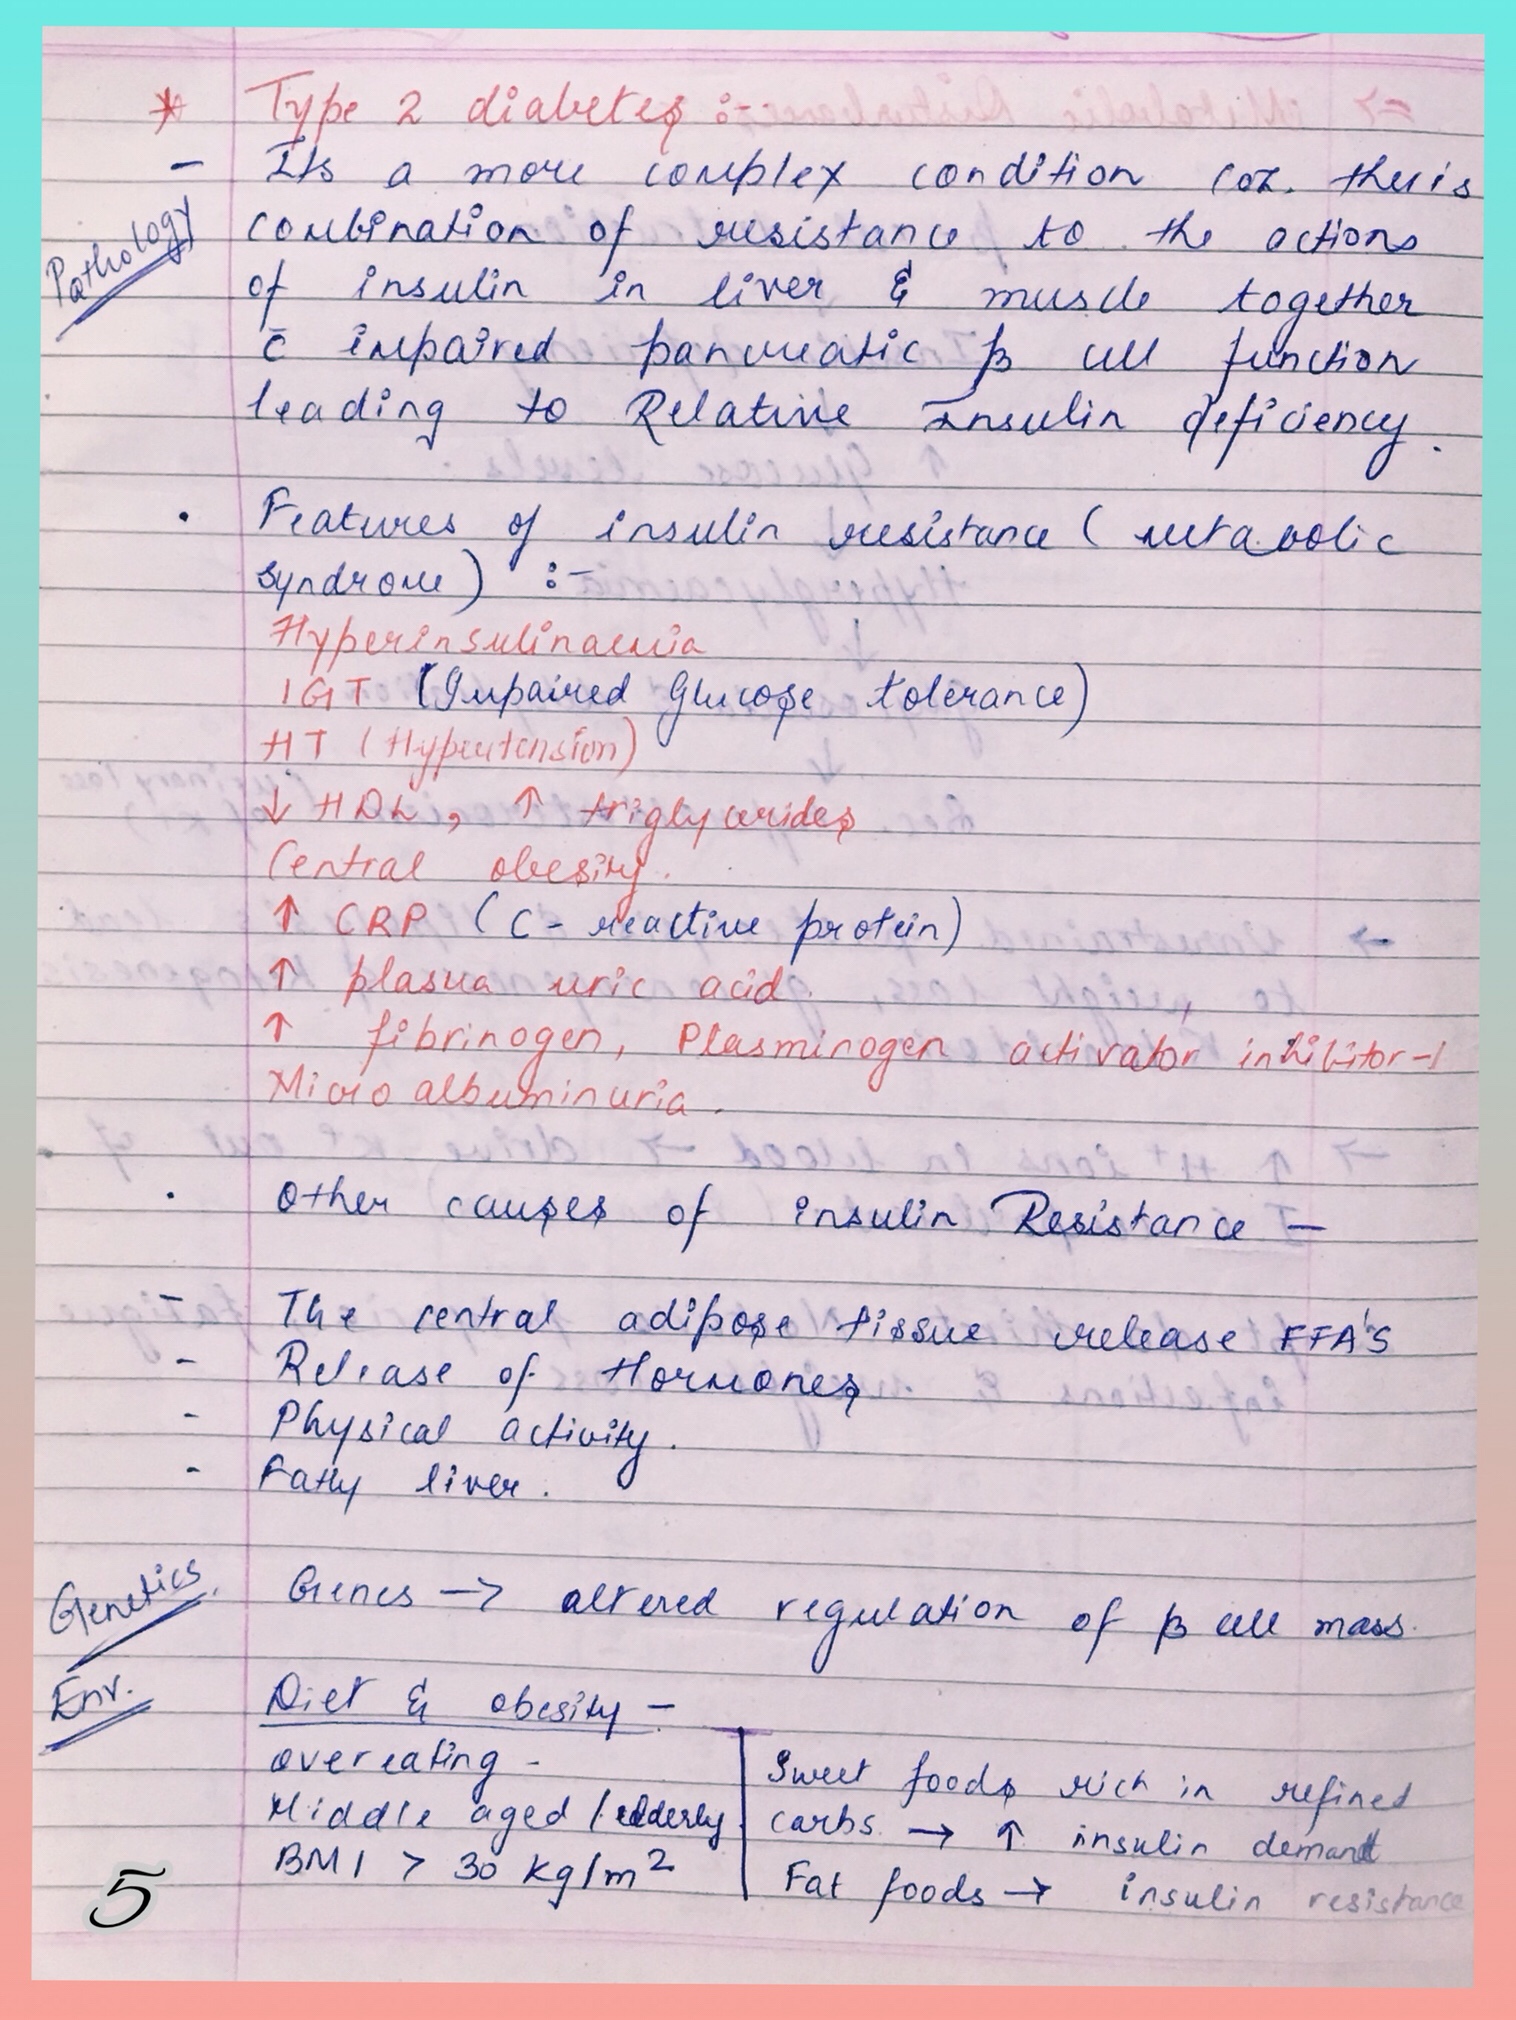 * Type 2 diabetes :-
- Its a more complex condition coz. there is
Pathology
combination of resistance to the actions
of insulin in liver & muscle together
c̄ impaired pancreatic β cell function
leading to Relative Insulin deficiency.
• Features of insulin resistance (metabolic
syndrome) :-
Hyperinsulinaemia
IGT (Impaired Glucose tolerance)
HT (Hypertension)
↓ HDL, ↑ triglycerides
Central obesity.
↑ CRP (C-reactive protein)
↑ plasma uric acid.
↑ fibrinogen, Plasminogen activator inhibitor-1
Micro albuminuria.
• Other causes of insulin Resistance -
- The central adipose tissue release FFA'S
- Release of Hormones
- Physical activity.
- Fatty liver.
Genetics
Genes → altered regulation of β cell mass.
Env.
Diet & obesity -
overeating -
Middle aged / elderly
BMI > 30 kg/m²
Sweet foods rich in refined
carbs → ↑ insulin demand
Fat foods → insulin resistance
5